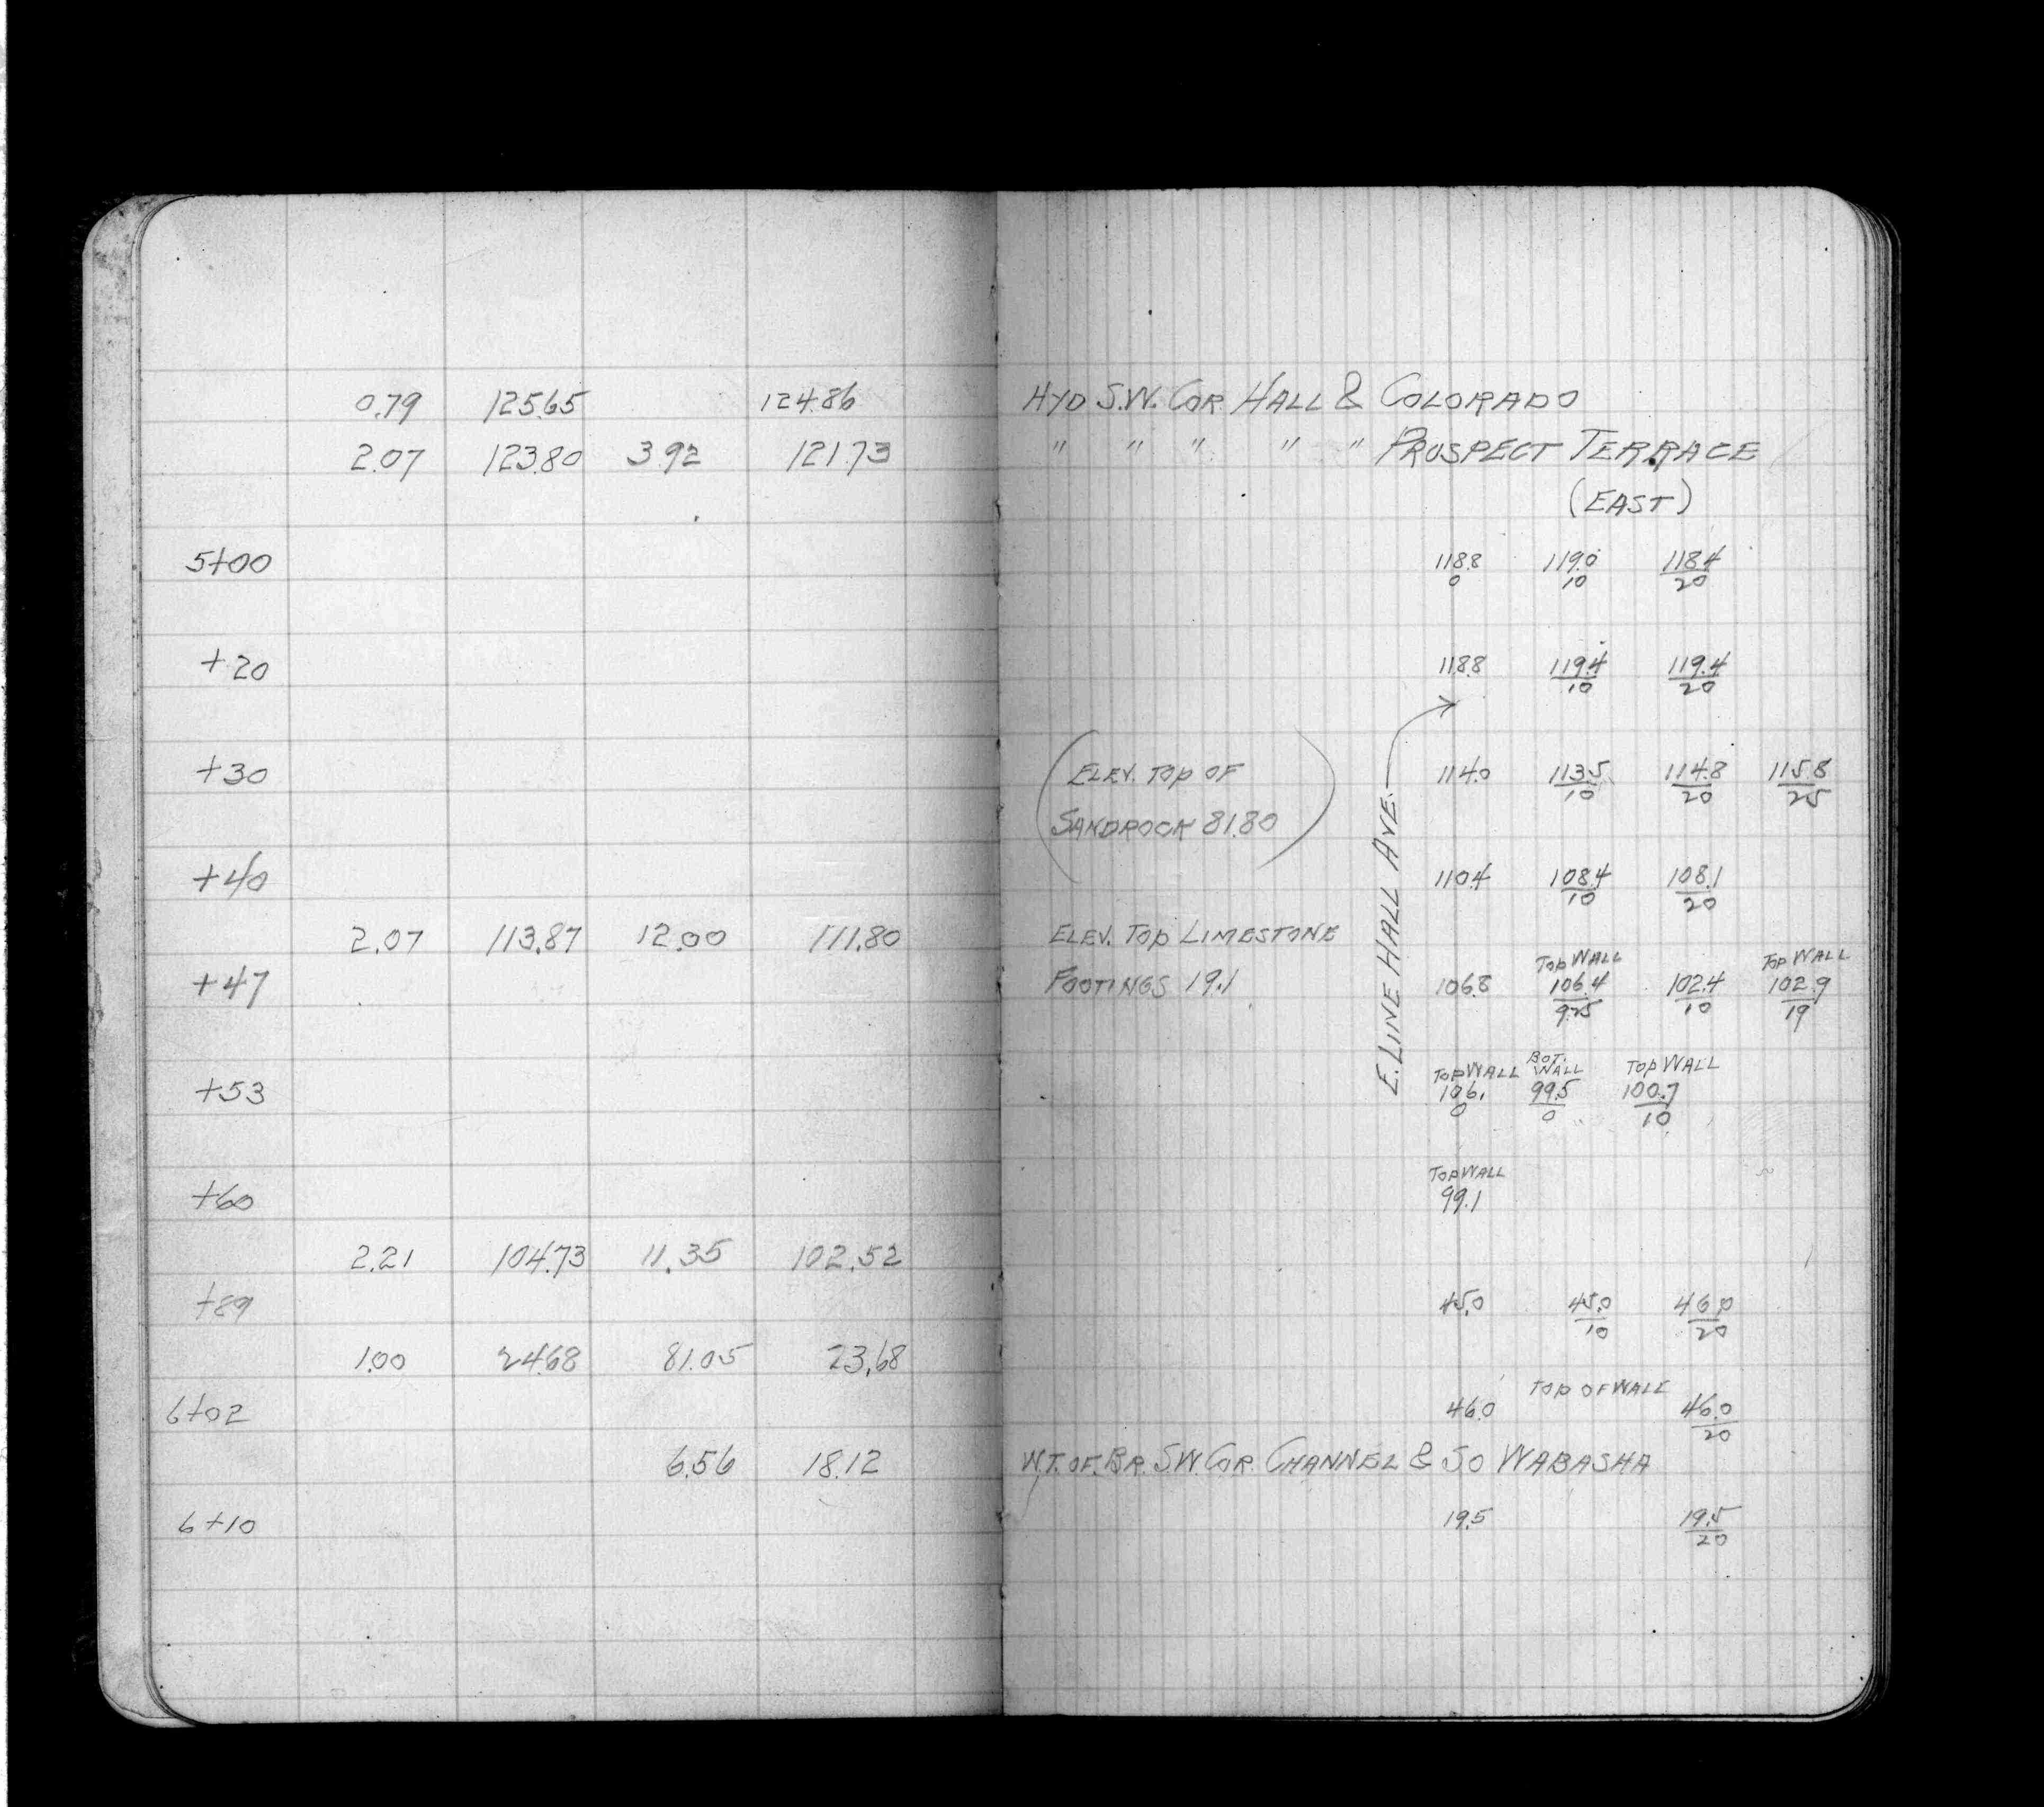 0.79 125.65 124.86 HYD S.W. COR. HALL & COLORADO
2.07 123.80 3.92 121.73 " " " " " PROSPECT TERRACE
(EAST)
5+00 118.8 119.0 118.4
0 10 20
+20 118.8 119.4 119.4
10 20
+30 ELEV. TOP OF 114.0 113.5 114.8 115.8
10 20 25
SANDROCK 81.80
E. LINE HALL AVE.
+40 110.4 108.4 108.1
10 20
2.07 113.87 12.00 111.80 ELEV. TOP LIMESTONE
TOP WALL TOP WALL
+47 FOOTINGS 19.1 106.8 106.4 102.4 102.9
9.25 10 19
TOP WALL BOT. WALL TOP WALL
+53 106. 99.5 100.7
0 0 10
TOP WALL
+60 99.1
2.21 104.73 11.35 102.52
+89 45.0 45.0 46.0
10 20
1.00 24.68 81.05 23.68
TOP OF WALL
6+02 46.0 46.0
20
6.56 18.12 W.T. OF. BR. S.W. COR. CHANNEL & SO WABASHA
6+10 19.5 19.5
20